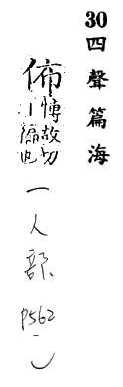 30四聲篇海
佈博故切
丁徧也
一
人部
P562